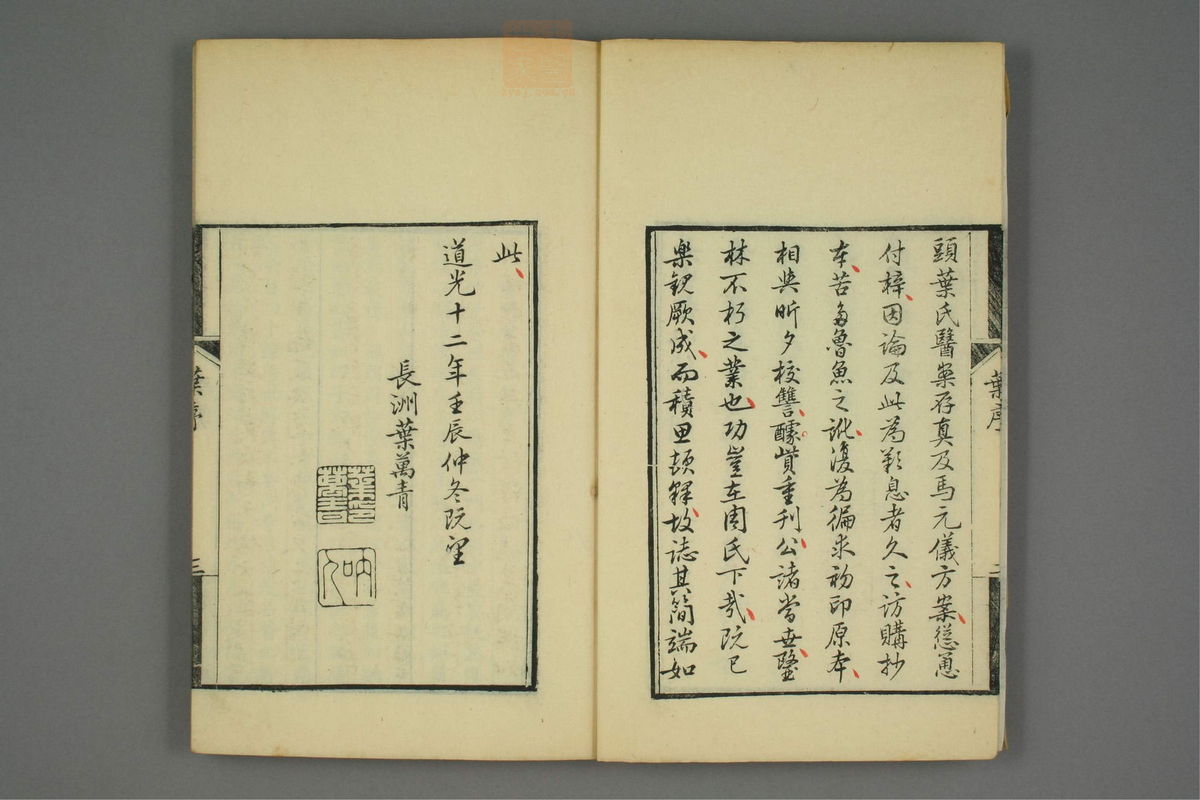 頭葉氏醫案存真及馬元儀方案慫恿
付梓因論及此為歎息者久之訪購抄
本苦多魯魚之訛復為徧求初印原本
相與昕夕校讐醵貲重刊公諸當世鑒
林不朽之業也功豈在周氏下哉既已
樂觀厥成而積思頓釋故誌其簡端如
葉序
三
此
道光十二年壬辰仲冬既望
長洲葉萬青
葉序
三